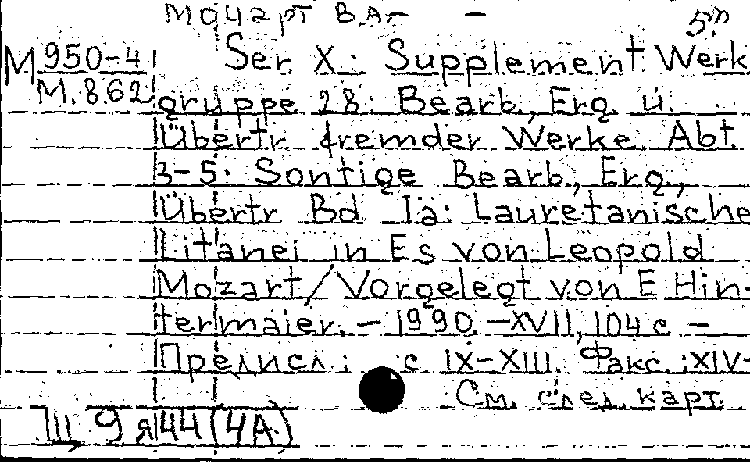 Моцарт В.А. – – 5п
М 950-4 Ser X: Supplement Werk
М.862 gruppe 28: Bearb., Erg. u.
Übertr fremder Werke Abt.
3-5: Sontige Bearb., Erg.,
Übertr Bd 1a: Lauretanische
Litanei in Es von Leopold
Mozart/Vorgelegt von E Hin-
termaier. – 1990. – XVII, 104 с –
Предисл.: с IX-XIII. Факс.: XIV-
См. след. карт.
Ш 9я44(4А)